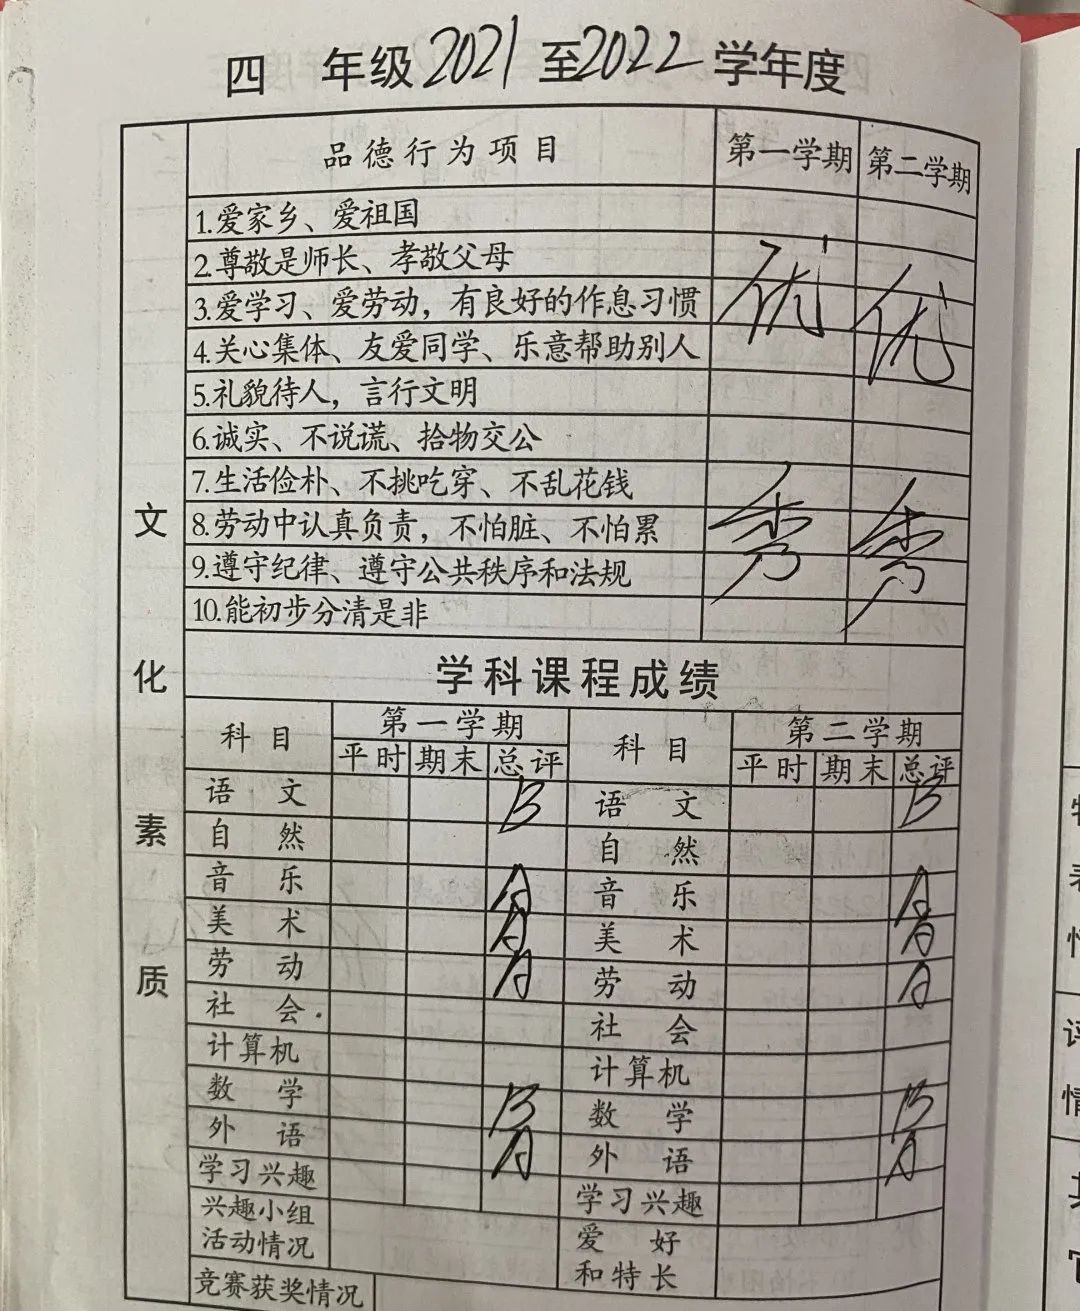 四 年级 2021 至 2022 学年度
品德行为项目 第一学期 第二学期
1.爱家乡、爱祖国
2.尊敬是师长、孝敬父母
3.爱学习、爱劳动，有良好的作息习惯
4.关心集体、友爱同学、乐意帮助别人
优 优
5.礼貌待人，言行文明
6.诚实、不说谎、拾物交公
7.生活俭朴、不挑吃穿、不乱花钱
8.劳动中认真负责，不怕脏、不怕累
秀 秀
9.遵守纪律、遵守公共秩序和法规
10.能初步分清是非
文化素质
学科课程成绩
科目 第一学期 科目 第二学期
平时 期末 总评 平时 期末 总评
语文 B 语文 B
自然 自然
音乐 A 音乐 A
美术 A 美术 A
劳动 A 劳动 A
社会 社会
计算机 计算机
数学 B 数学 B
外语 A 外语 A
学习兴趣 学习兴趣
兴趣小组 爱好
活动情况 和特长
竞赛获奖情况